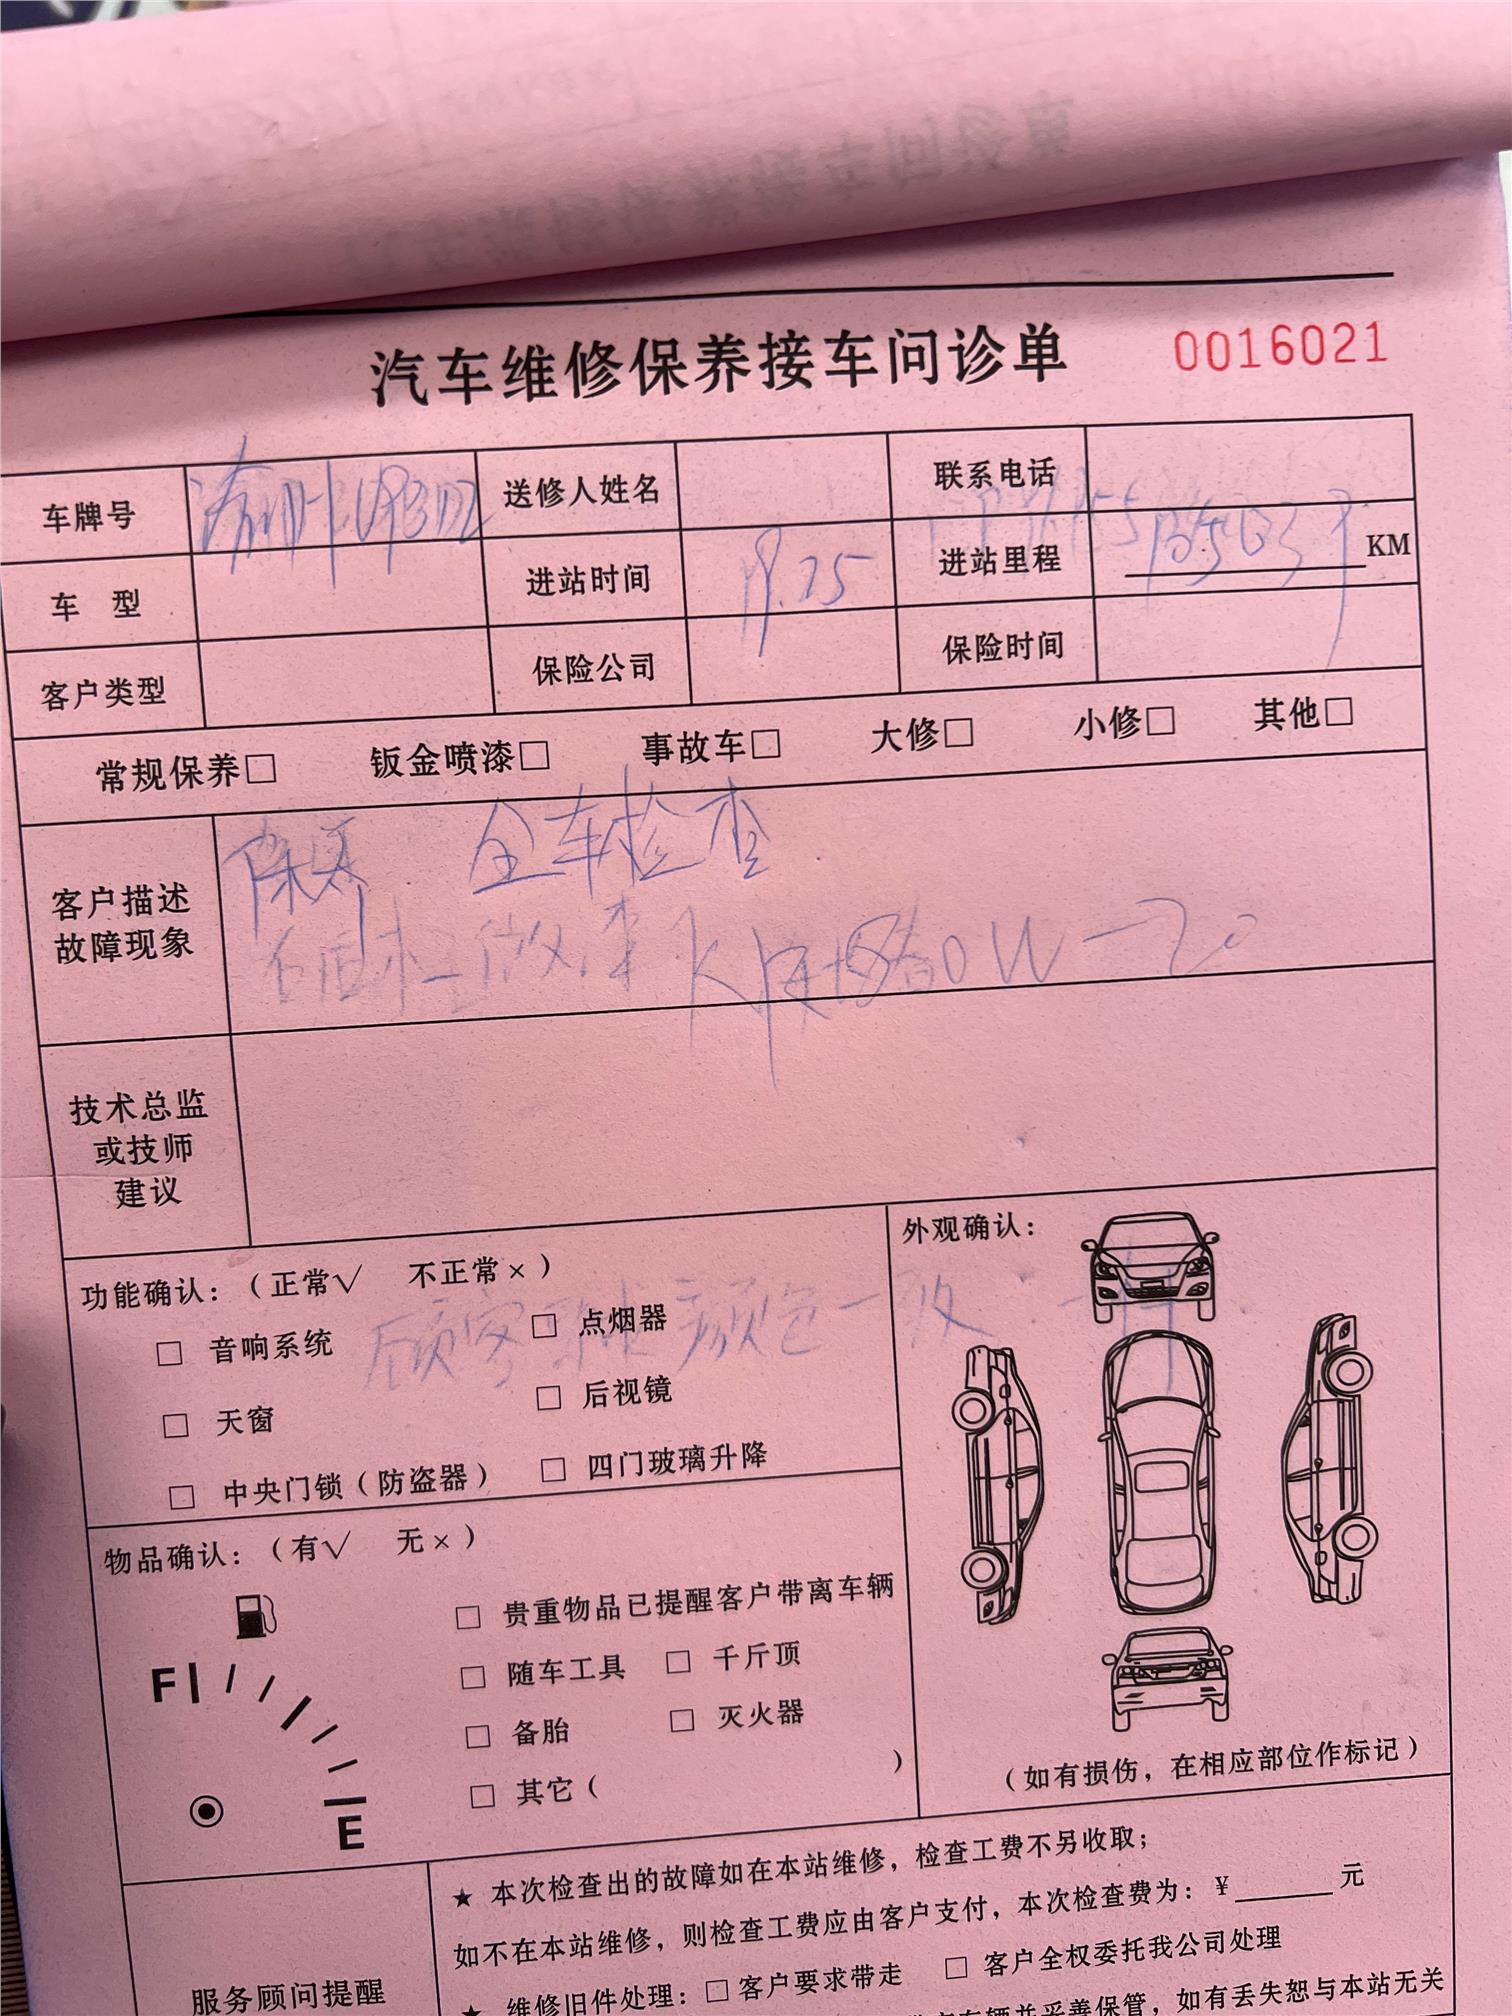 汽车维修保养接车问诊单 0016021
车牌号 送修人姓名 联系电话
车 型 进站时间 9.25 进站里程 KM
客户类型 保险公司 保险时间
常规保养□ 钣金喷漆□ 事故车□ 大修□ 小修□ 其他□
客户描述
故障现象
保养 全车检查
0W-20
技术总监
或技师
建议
功能确认：（正常√ 不正常×）
□ 音响系统 □ 点烟器
□ 天窗 □ 后视镜
□ 中央门锁（防盗器） □ 四门玻璃升降
颜色一致
外观确认：
（如有损伤，在相应部位作标记）
物品确认：（有√ 无×）
F
E
□ 贵重物品已提醒客户带离车辆
□ 随车工具 □ 千斤顶
□ 备胎 □ 灭火器
□ 其它（ ）
服务顾问提醒
★ 本次检查出的故障如在本站维修，检查工费不另收取；
如不在本站维修，则检查工费应由客户支付，本次检查费为：¥______元
★ 维修旧件处理：□ 客户要求带走 □ 客户全权委托我公司处理
车辆并妥善保管，如有丢失恕与本站无关